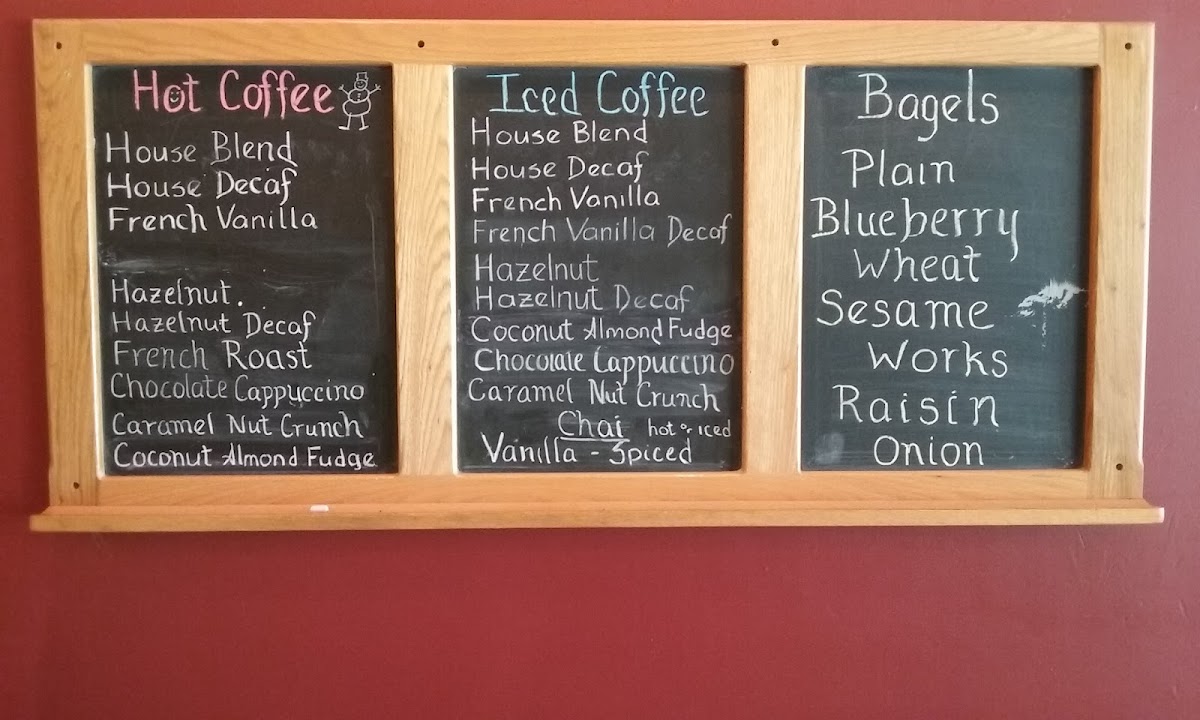 Hot Coffee
House Blend
House Decaf
French Vanilla
Hazelnut.
Hazelnut Decaf
French Roast
Chocolate Cappuccino
Caramel Nut Crunch
Coconut Almond Fudge
Iced Coffee
House Blend
House Decaf
French Vanilla
French Vanilla Decaf
Hazelnut
Hazelnut Decaf
Coconut Almond Fudge
Chocolate Cappuccino
Caramel Nut Crunch
Chai hot or iced
Vanilla - Spiced
Bagels
Plain
Blueberry
Wheat
Sesame
Works
Raisin
Onion